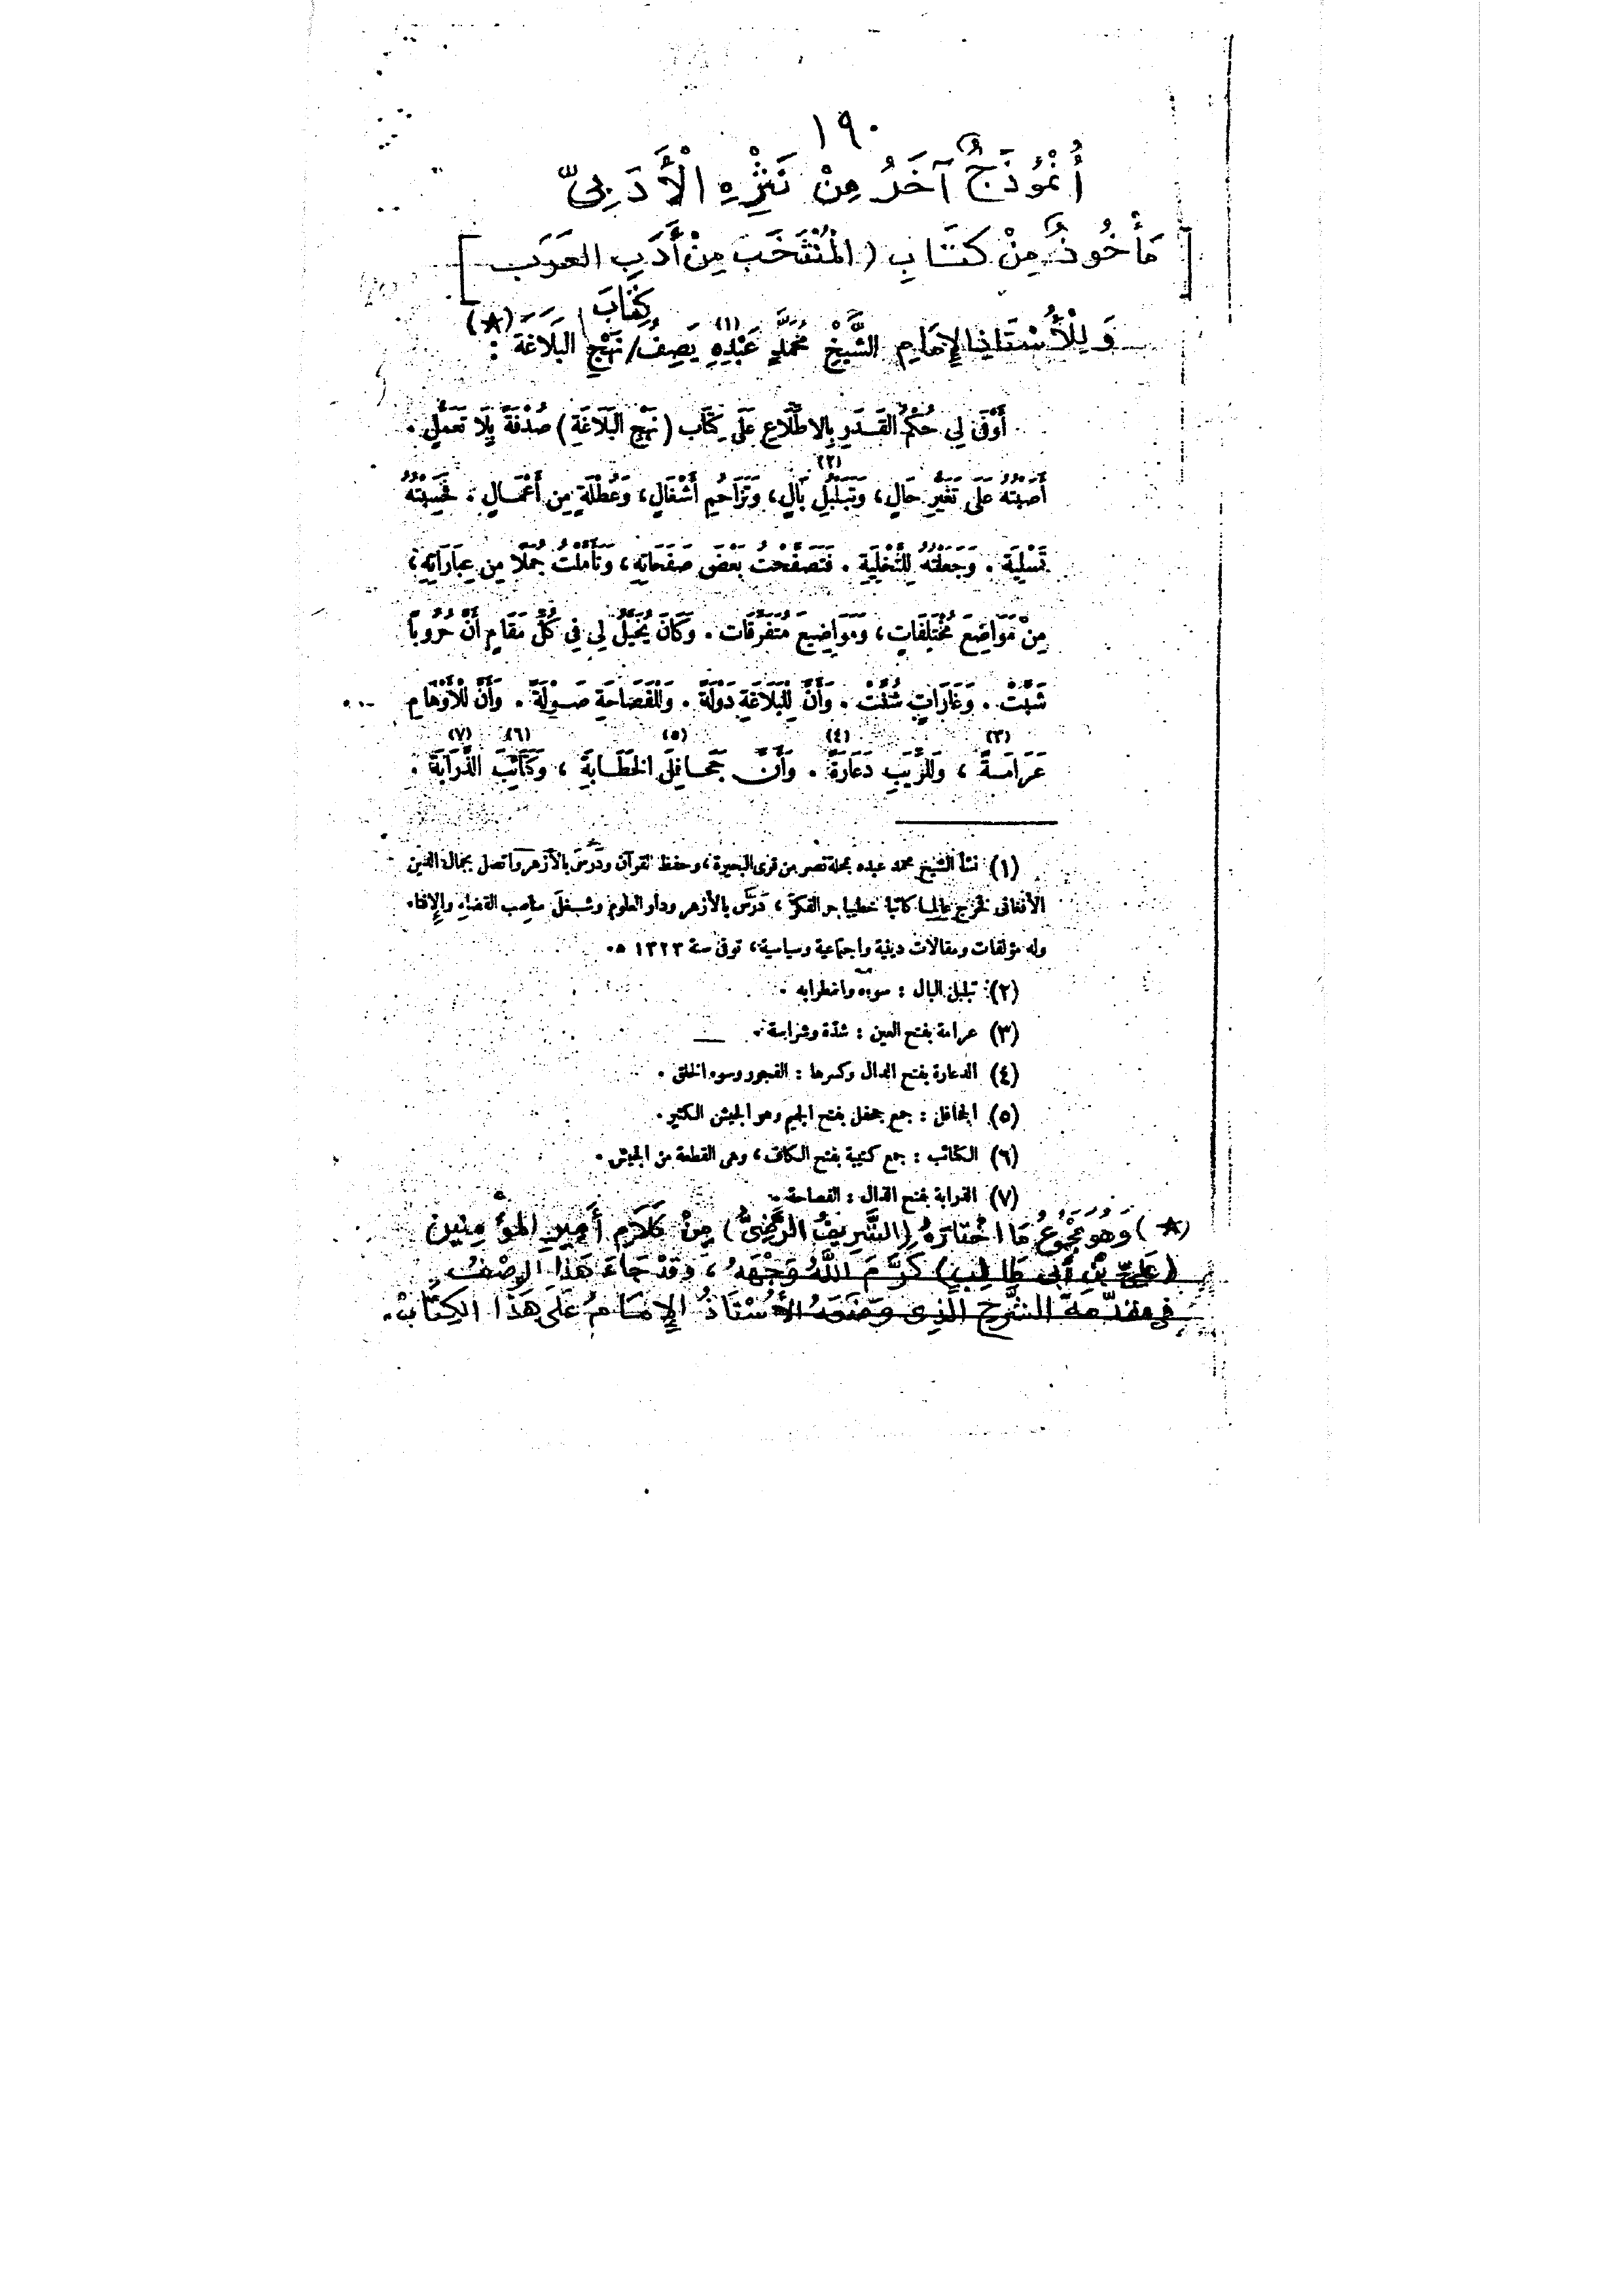 ١٩٠
أُنْمُوذَجٌ آخَرُ مِنْ نَثْرِهِ الْأَدَبِيّ
[مَأْخُوذٌ مِنْ كتَابِ (الْمُنْتَخَبَ مِنْ أَدَبِ العَرَب]
كِتَابَ
وَلِلْأُسْتَاذِ الإِمَامِ الشَّيْخِ مُحَمَّدٍ عَبْدِهِ (١) يَصِفُ / نَهْجِ البَلَاغَة (★) :
أَوْفَى لِي حُكْمُ القَدَرِ بِالِاطِّلَاعِ عَلَى كِتَاب (نَهْجِ البَلَاغَةِ) صُدْفَةً بِلَا تَعَمُّلٍ .
أَصَبْتُهُ عَلَى تَغَيُّرِ حَالٍ ، وَتَبَلْبُلِ بَالٍ (٢) ، وَتَزَاحُمِ أَشْغَالٍ ، وَعُطْلَةٍ مِن أَعْمَـالٍ . فَحَسِبْتُهُ
تَسْلِيَةً . وَجَعَلْتُهُ لِلتَّخْلِيَةِ . فَتَصَفَّحْتُ بَعْضَ صَفَحَاتِهِ ، وَتَأَمَّلْتُ جُمَلًا مِن عِبَارَاتِهِ ،
مِنْ مَوَاضِعَ مُخْتَلِفَاتٍ ، وَمَوَاضِيعَ مُتَفَرِّقَات . وَكَانَ يُخَيَّلُ لِي فِي كُلِّ مَقَامٍ أَنَّ حُرُوبًا
شَبَّتْ . وَغَارَاتٍ شُنَّتْ . وَأَنَّ لِلْبَلَاغَةِ دَوْلَةً . وَلِلْفَصَاحَةِ صَـوْلَةً . وَأَنَّ لِلْأَوْهَامِ
عَرَامَـةً (٣) ، وَلِلرِّيَبِ دَعَارَةً (٤) . وَأَنَّ جَحَـافِلَ (٥) الخَطَـابَةِ ، وَكَتَائِبَ (٦) الذَّرَابَةِ (٧) .
(١) نشأ الشيخ محمد عبده بمحلة نصر من قرى البحيرة ، وحفظ القرآن ودَرَسَ بالأزهر واتصل بجمال الدين
الأفغانى فخرج عالما كاتبا خطيبا حر الفكر ، دَرَّسَ بالأزهر ودار العلوم وشـغل مناصب القضاء والإفتاء
وله مؤلفات ومقالات دينية واجتماعية وسياسية ، توفى سنة ١٣٢٣ ه.
(٢) تبلبل البال : سوءه واضطرابه .
(٣) عرامة بفتح العين : شدّة وشراسة .
(٤) الدعارة بفتح الدال وكسرها : الفجور وسوء الخلق .
(٥) الجحافل : جمع جحفل بفتح الجيم وهو الجيش الكثير .
(٦) الكتائب : جمع كتيبة بفتح الكاف ، وهى القطعة من الجيش .
(٧) الذرابة بفتح الذال : الفصاحة .
(★) وَهُوَ مَجْمُوعُ مَا اخْتَارَهُ (الشَّرِيفُ الرَّضِيُّ) مِنْ كَلَامِ أَمِيرِ المؤمِنِين
(عَلِيِّ بْنِ أَبِى طَالِبٍ) كَرَّمَ اللَّهُ وَجْهَهُ ، وَقَدْ جَاءَ هَذَا الوصْفُ
فى مقدّمة الشَّرْحِ الَّذِى وَضَعَهُ الأُسْتَاذُ الإِمَامُ عَلَى هَذَا الكِتَابْ.